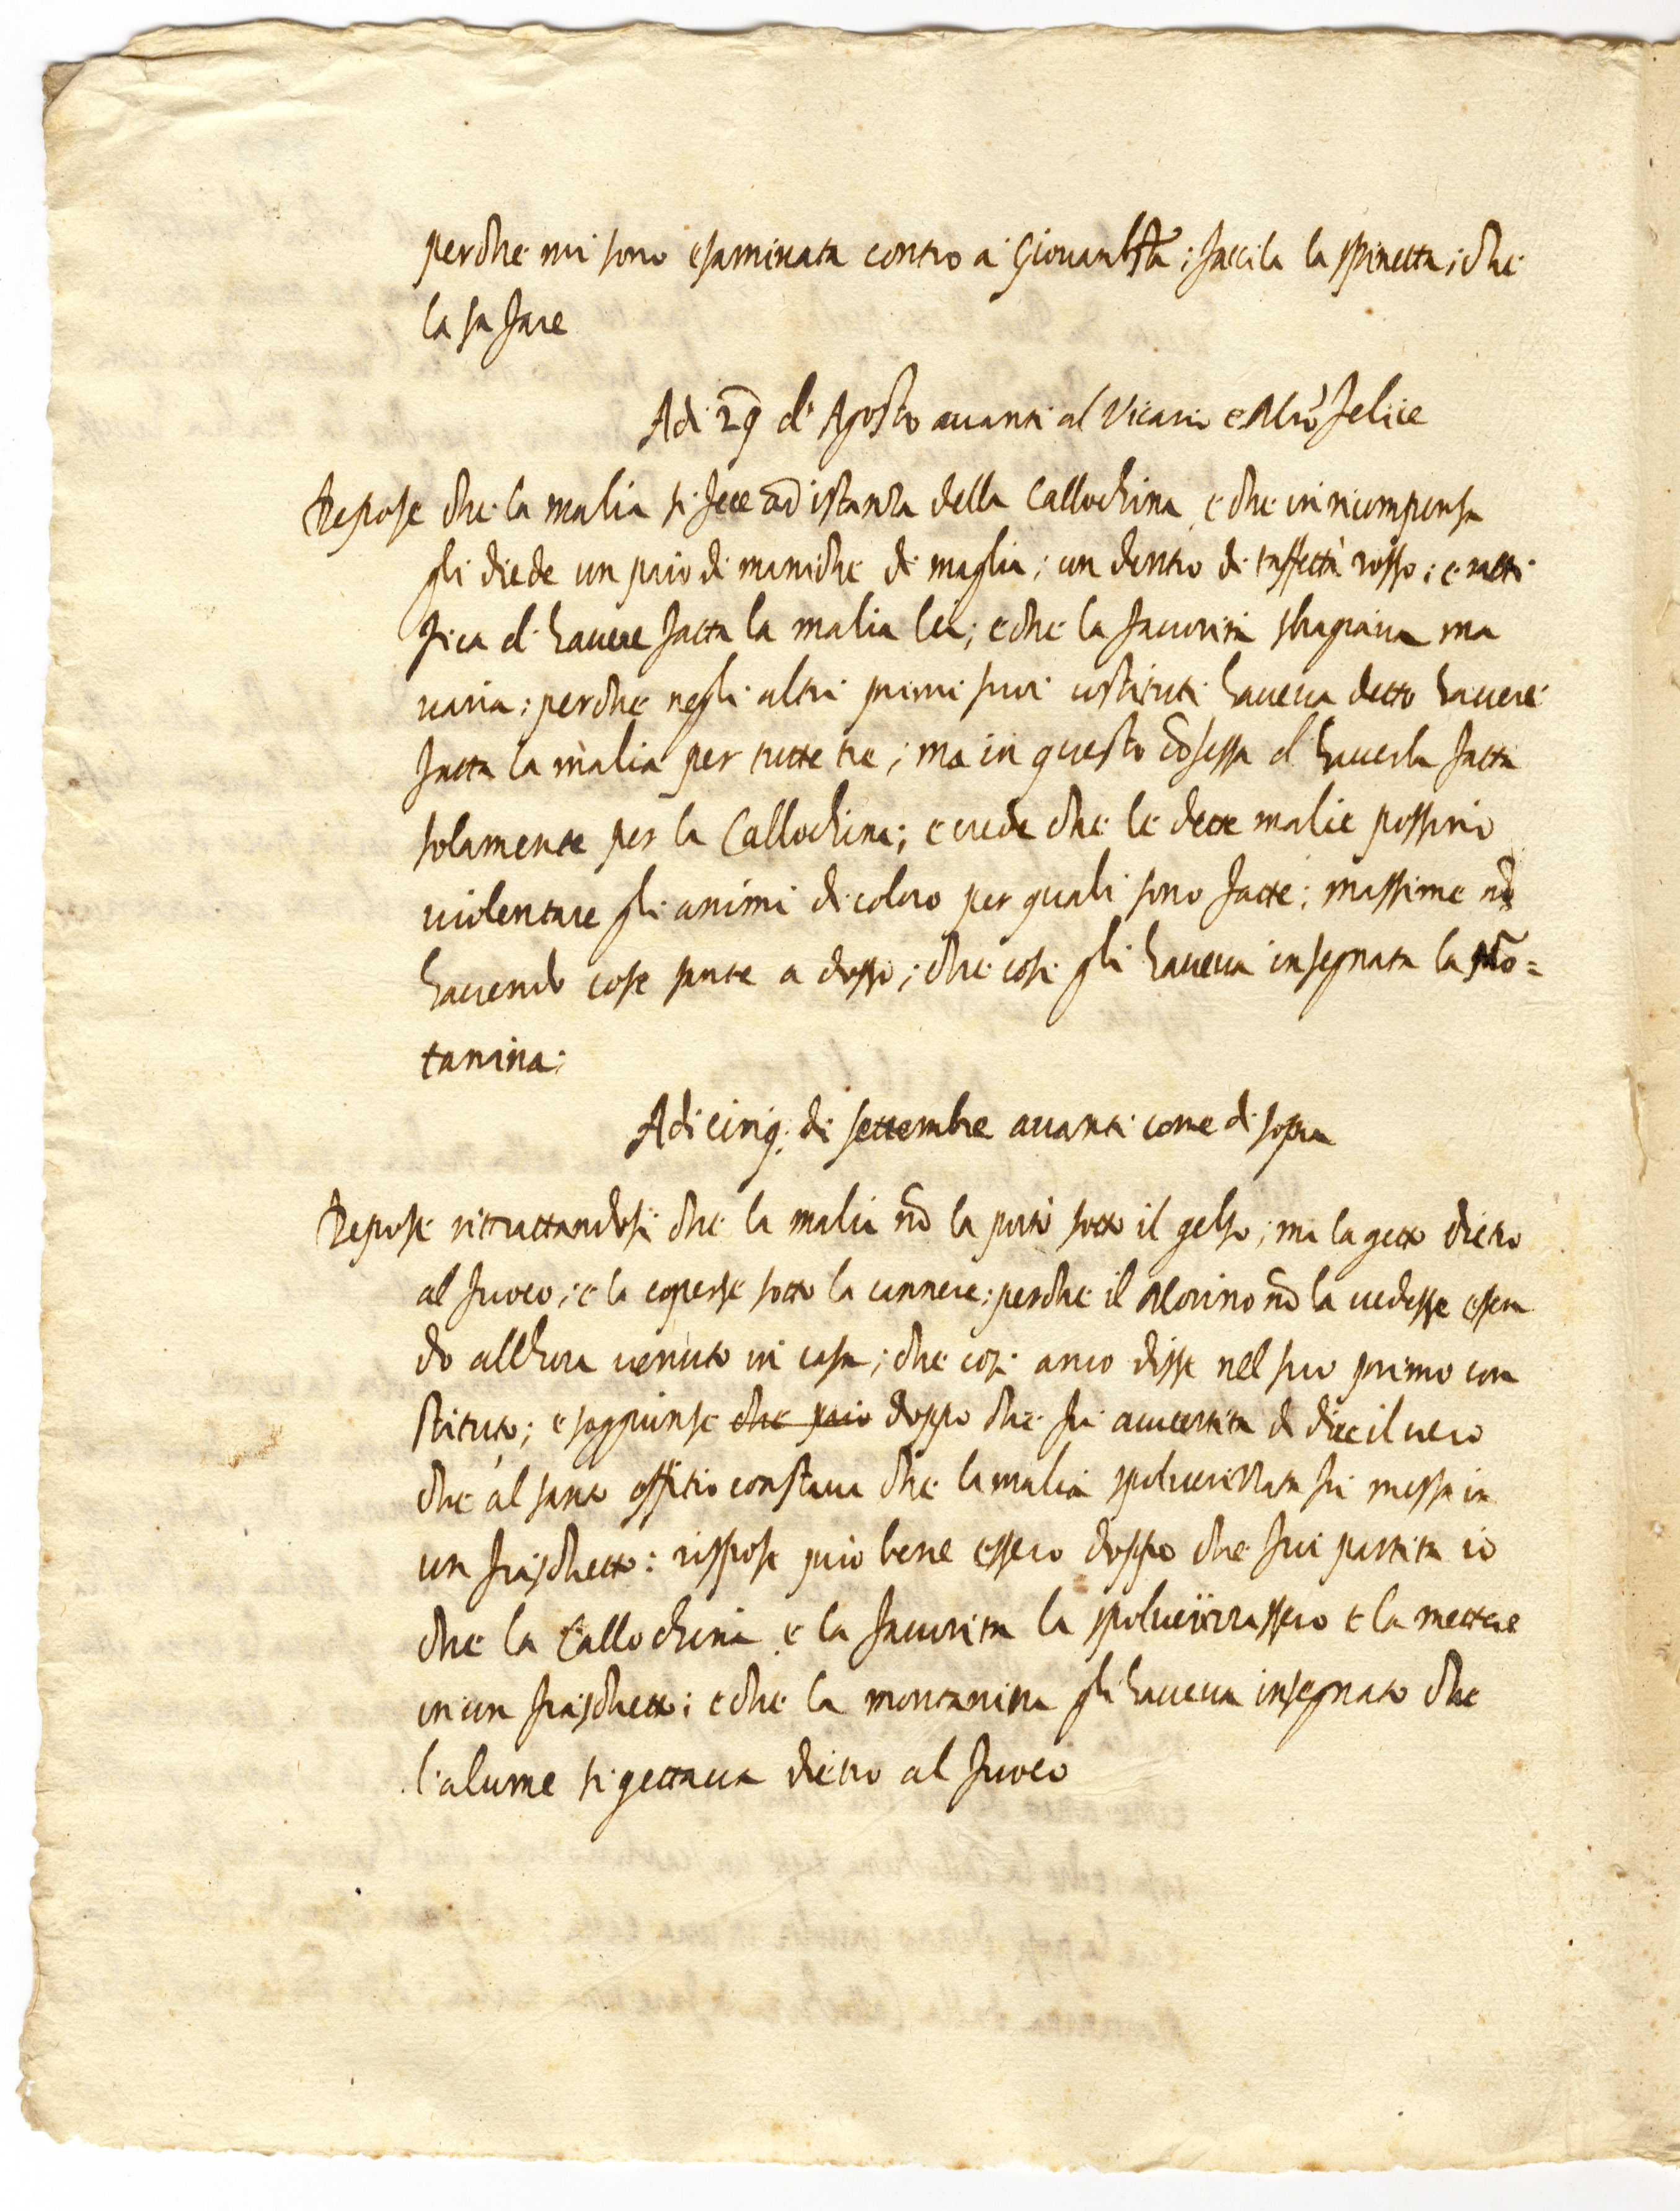 perche mi sono esaminata contro a Giovanbta; faccila la spinetta; che
la sa fare
Adi 29 d'Agosto avanti al Vicario e Mro felice
Depose che la malia si fece ad istanza della Callochina e che in ricompensa
gli diede un paio di maniche di maglia; un dentro di taffettà rosso; e ratti
fica d'havere fatta la malia lei; e che la favorita strapaua ma
varia; perche negli altri primi suoi costituti haveva detto havere
fatta la malia per tutte tre; ma in questo cofessa d'haverla fatta
solamente per la Callochina; e crede che le dette malie possino
violentare gli animi di coloro per quali sono fatte; massime no
havendo cose sante a dosso; che cosi gli haveva insegnata la Mo=
tanina;
Adi cinq. di settembre avanti come di sopra
Depose ritrattandosi che la malia no la portò sotto il gelso; ma la getto dietro
al fuoco; e la coperse sotto la cannere; perche il Morino no la vedesse essen
do allhora venuto in casa; che cosi anco disse nel suo primo con
stituto; e soggiunse che puio doppo che fu avvertita di dire il vero
che al santo offitio constava che la malia spolverizzata fu messa in
un fraschetto; rispose puio bene essero doppo che fui partita io
che la Callochina e la favorita la spolverizzassero e la mettere
in un fraschetto; e che la montanina gli haveva insegnato che
l'alume si gettava dietro al fuoco